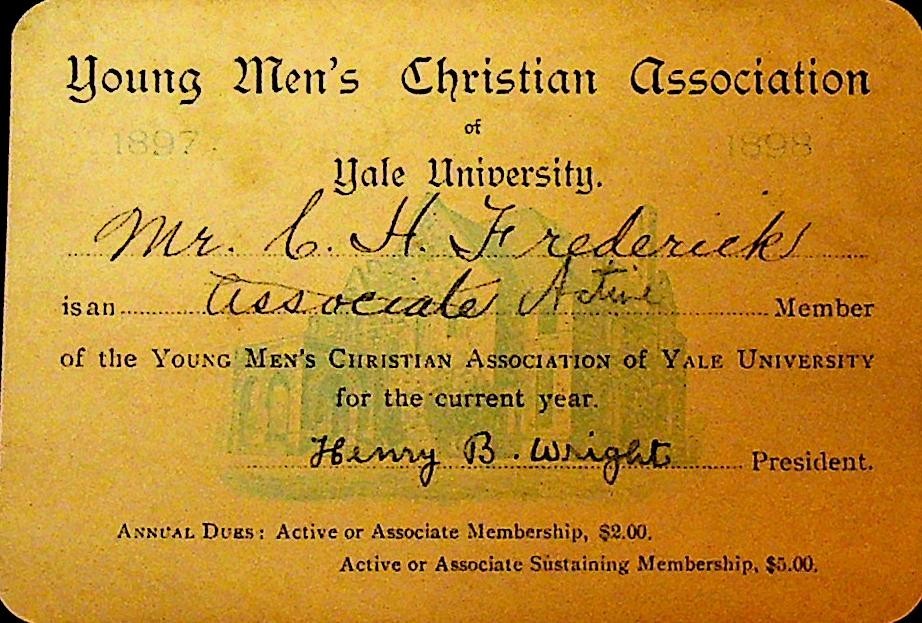 Young Men's Christian Association
of
1897 1898
Yale University.
Mr. C. H. Frederick
is an Associate Active Member
of the YOUNG MEN'S CHRISTIAN ASSOCIATION of YALE UNIVERSITY
for the current year.
Henry B. Wright President.
ANNUAL DUES: Active or Associate Membership, $2.00.
Active or Associate Sustaining Membership, $5.00.